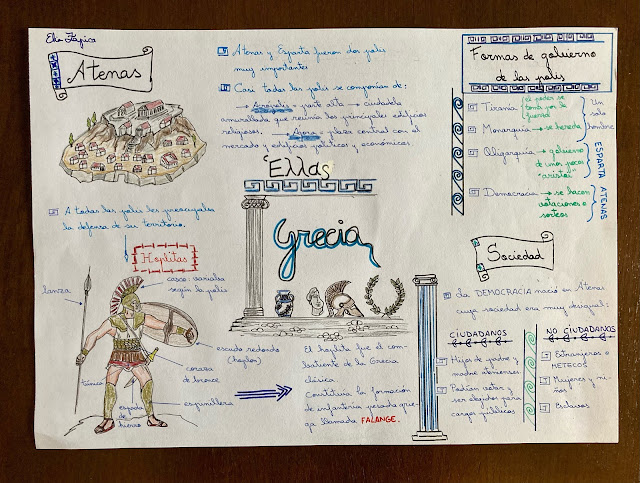 Elia Tápica
Atenas
Atenas y Esparta fueron dos polis
muy importantes
Casi todas las polis se componían de:
→ Acrópolis → parte alta → ciudadela
amurallada que reunía los principales edificios
religiosos. → Ágora → plaza central con el
mercado y edificios políticos y económicos.
Formas de gobierno
de las polis
Tiranía
el poder se
toma por la
fuerza
Monarquía → se hereda
Un
solo
hombre
Oligarquía → gobierno
de unos pocos
"aristoi"
ESPARTA
Democracia → se hacen
votaciones o
sorteos
ATENAS
Ἑλλας
Grecia
A todas las polis les preocupaba
la defensa de su territorio.
Hoplitas
lanza
casco: variaba
según la polis
escudo redondo
(hoplon)
coraza
de bronce
túnica
espada
de
hierro
espinillera
El hoplita fue el com-
batiente de la Grecia
clásica
Constituía la formación
de infantería pesada grie-
ga llamada FALANGE.
Sociedad
La DEMOCRACIA nació en Atenas
cuya sociedad era muy desigual:
CIUDADANOS
Hijos de padre y
madre atenienses
Podían votar y
ser elegidos para
cargos públicos
NO CIUDADANOS
Extranjeros o
METECOS
Mujeres y ni-
ños
Esclavos